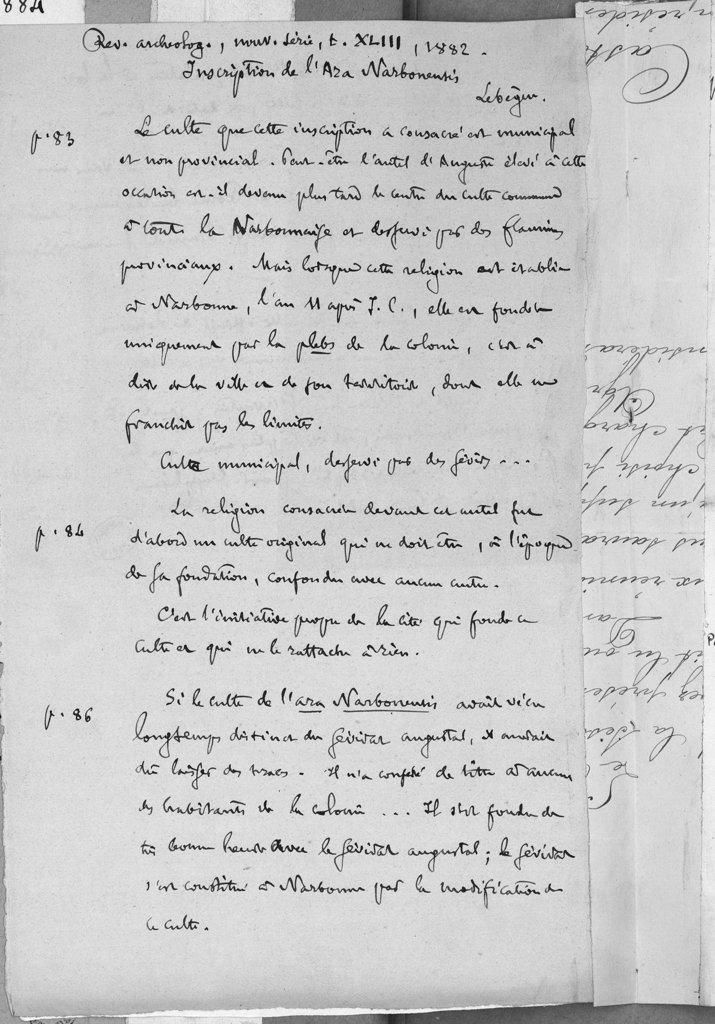 Rev. archéolog., nouv. série, t. XLIII, 1882.
Inscription de l'Ara Narbonensis
Lebègue.
p. 83 Le culte que cette inscription a consacré est municipal
et non provincial. Peut-être l'autel d'Auguste élevé à cette
occasion est-il devenu plus tard le centre du culte commun
à toute la Narbonnaise et desservi par des flamines
provinciaux. Mais lorsque cette religion est établie
à Narbonne, l'an 11 après J. C., elle est fondée
uniquement par la plebs de la colonie, c'est à
dire de la ville et de son territoire, dont elle ne
franchit pas les limites.
Culte municipal, desservi par des sévirs...
La religion consacrée devant cet autel fut
p. 84 d'abord un culte original qui ne doit être, à l'époque
de sa fondation, confondu avec aucun autre.
C'est l'initiative propre de la cité qui fonde ce
culte et qui ne le rattache à rien.
p. 86 Si le culte de l'ara Narbonensis avait vécu
longtemps distinct du sévirat augustal, il aurait
dû laisser des traces. Il n'a conféré de titre à aucun
des habitants de la colonie ... Il s'est fondu de
très bonne heure avec le sévirat augustal; le sévirat
s'est constitué à Narbonne par la modification de
ce culte.